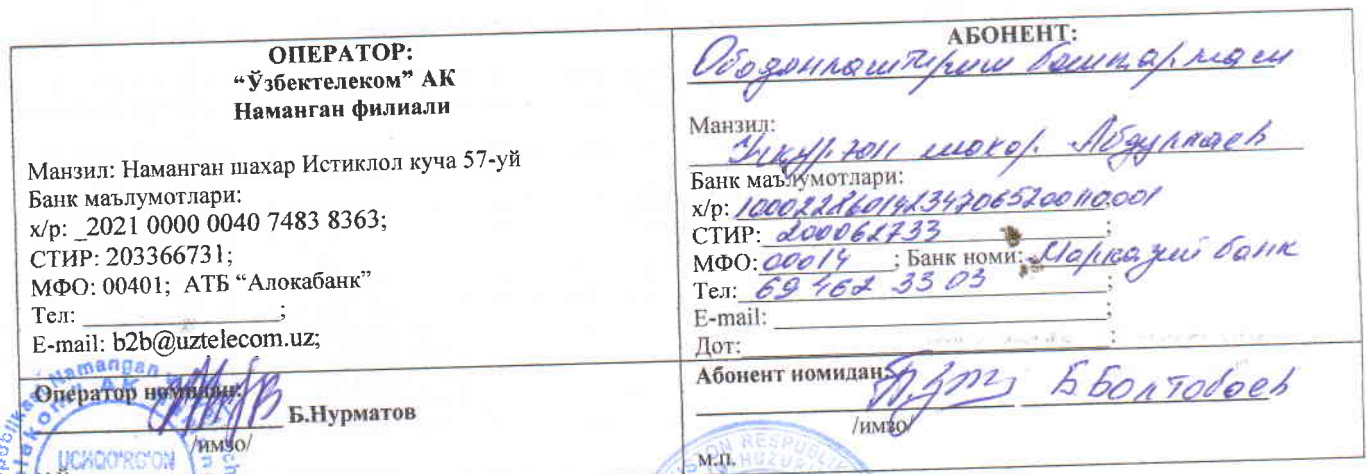 ОПЕРАТОР:
“Ўзбектелеком” АК
Наманган филиали
Манзил: Наманган шахар Истиклол куча 57-уй
Банк маълумотлари:
х/р: _2021 0000 0040 7483 8363;
СТИР: 203366731;
МФО: 00401; АТБ “Алокабанк”
Тел: ______________;
E-mail: b2b@uztelecom.uz;
Оператор номидан:
Б.Нурматов
/имзо/
АБОНЕНТ:
Ободонлаштириш бошкармаси
Манзил:
Учкургон шахар Абдуллаев
Банк маълумотлари:
х/р: 100022860142347065200110001
СТИР: 200062733;
МФО: 00014; Банк номи: Марказий банк
Тел: 69 462 33 03;
E-mail: ______________;
Дот: ______________;
Абонент номидан:
Б.Болтобоев
/имзо/
М.П.
Namangan
UCHQO'RG'ON